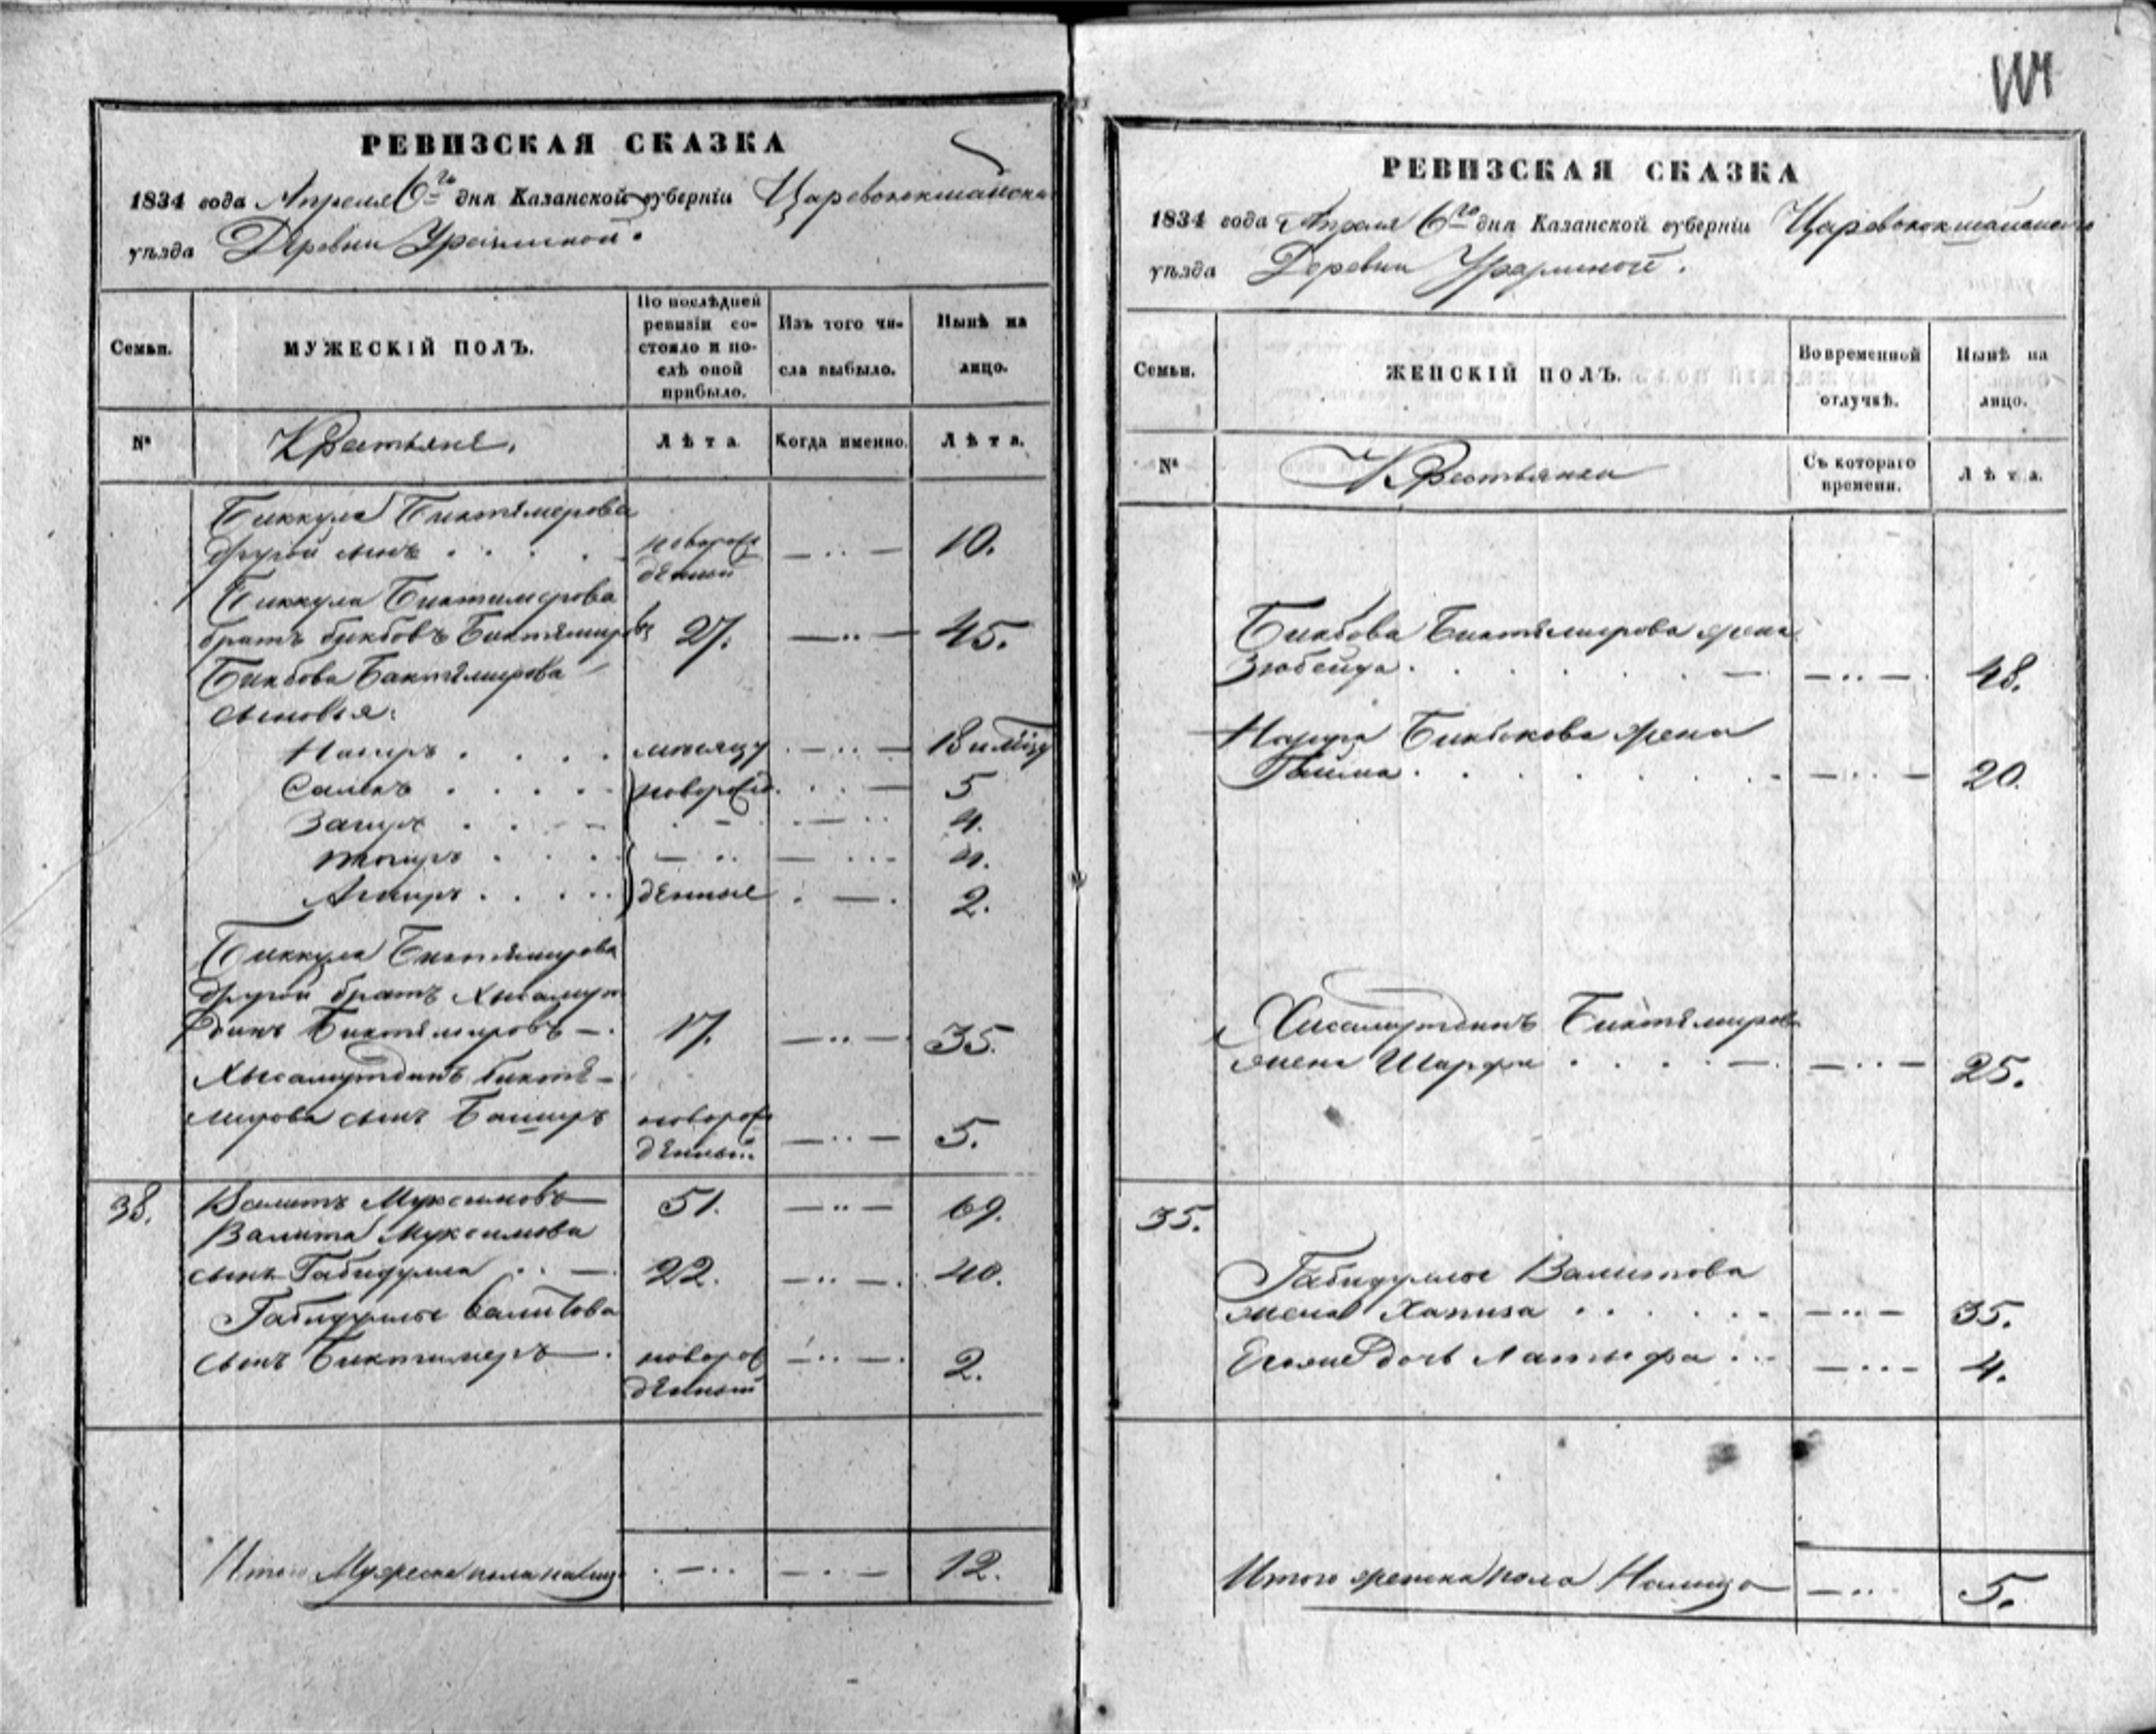 РЕВИЗСКАЯ СКАЗКА
1834 года Апреля 6го дня Казанской губерніи Царевококшайска
уѣзда Деревни
Семьи.
МУЖЕСКІЙ ПОЛЪ.
По послѣдней ревизіи состояло и послѣ оной прибыло.
Изъ того числа выбыло.
Нынѣ на лицо.
№
Крестьяне.
Лѣта.
Когда именно.
Лѣта.
Биккула Биктимерова
другой сынъ новорож 10.
денный
Биккула Биктимерова
братъ Бикбовъ Биктимировъ 27. 45.
Бикбова Биктимирова
сыновья:
Нагиръ месяцу 18
Салихъ новорож 5
Загиръ 4.
4.
денные 2.
Биккула Биктимирова
другой братъ Хисамут
динъ Биктимировъ 17. 35.
Хисамутдинъ Бикти-
мирова сынъ Баширъ новорож
денный 5.
38. Валитъ Муксиновъ 51. 69.
Валита Муксинова
сынъ Габидулла 22. 40.
Габидуллы Валитова
сынъ Биктимеръ новорож 2.
денный
Итого Мужеска пола налицо 12.
РЕВИЗСКАЯ СКАЗКА
1834 года Апреля 6го дня Казанской губерніи Царевококшайскаго
уѣзда Деревни
Семьи.
ЖЕНСКІЙ ПОЛЪ.
Во временной отлучкѣ.
Нынѣ на лицо.
№
Крестьянки
Съ котораго времени.
Лѣта.
Бикбова Биктимирова жена
Зюбейда 48.
жена
20.
Хисамутдинъ Биктимирова
жена Шарфи 25.
35.
Габидуллы Валитова
жена Ханиза 35.
Ея дочь Латифа 4.
Итого женска пола Налицо 5.